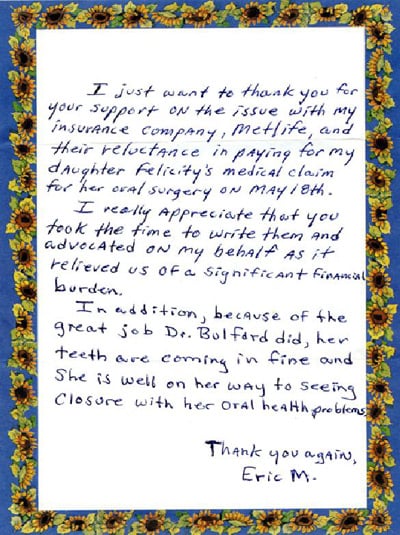 I just want to thank you for
your support on the issue with my
insurance company, Metlife, and
their reluctance in paying for my
daughter Felicity's medical claim
for her oral surgery on May 18th.
I really appreciate that you
took the time to write them and
advocated on my behalf as it
relieved us of a significant financial
burden.
In addition, because of the
great job Dr. Bulford did, her
teeth are coming in fine and
she is well on her way to seeing
closure with her oral health problems.
Thank you again,
Eric M.